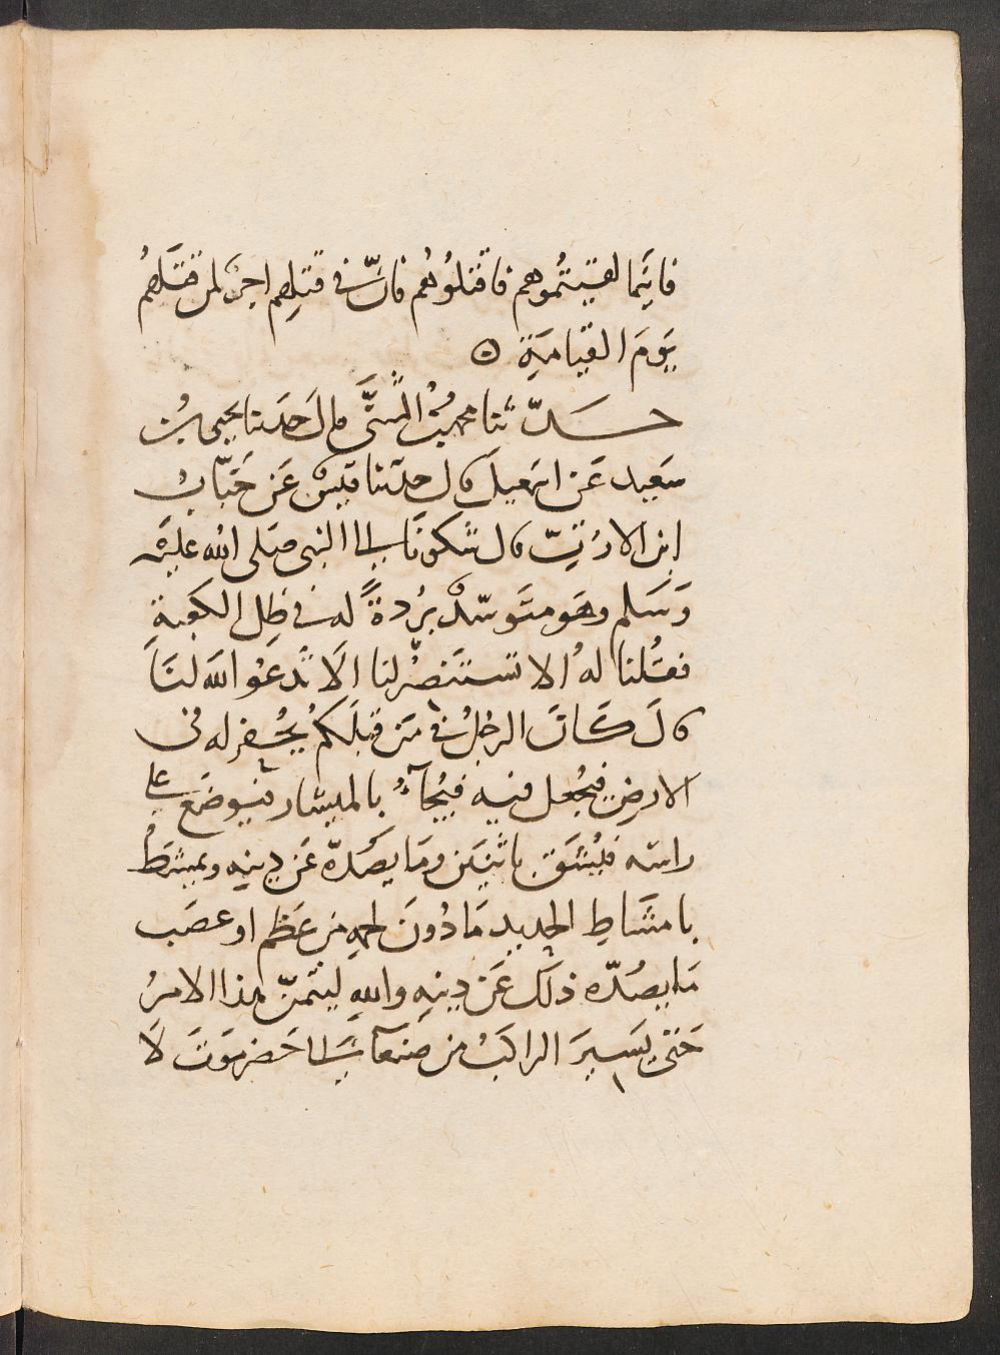 فاينما لقيتموهم فاقتلوهم فانّ في قتلهم اجرٌ لمن قتلهم
يومَ القيامةِ ۞
حدّثنا محمد بن المثنّى قال حدثنا يحيى بن
سعيد عَن اسمعيلَ قال حدثنا قيسٌ عَن خَبّاب
ابن الارتّ قال شكونَا الى النبي صلى الله عليه
وَسَلم وهو متوسّدٌ بُردةً له في ظِل الكعبةِ
فقُلنا لهُ الا تستنصرُ لنا الَا تدعُو الله لنَا
قالَ كَانَ الرجلُ في مَن قبلَكمُ يُحفر له في
الارضِ فيُجعل فيه فيُجآءُ بالميشار فيوضَع على
راسه فيُشَقّ باثنين ومَا يصُدّه عَن دينِه ويمشَطُ
بامشَاطِ الحديد مَا دُونَ لحمهِ من عَظم او عصَب
مَا يصُدّه ذلك عَن دينهِ واللهِ ليتمنّ هذا الامرُ
حَتى يَسيرَ الراكبُ من صنعآ الى حَضرموَتَ لَا